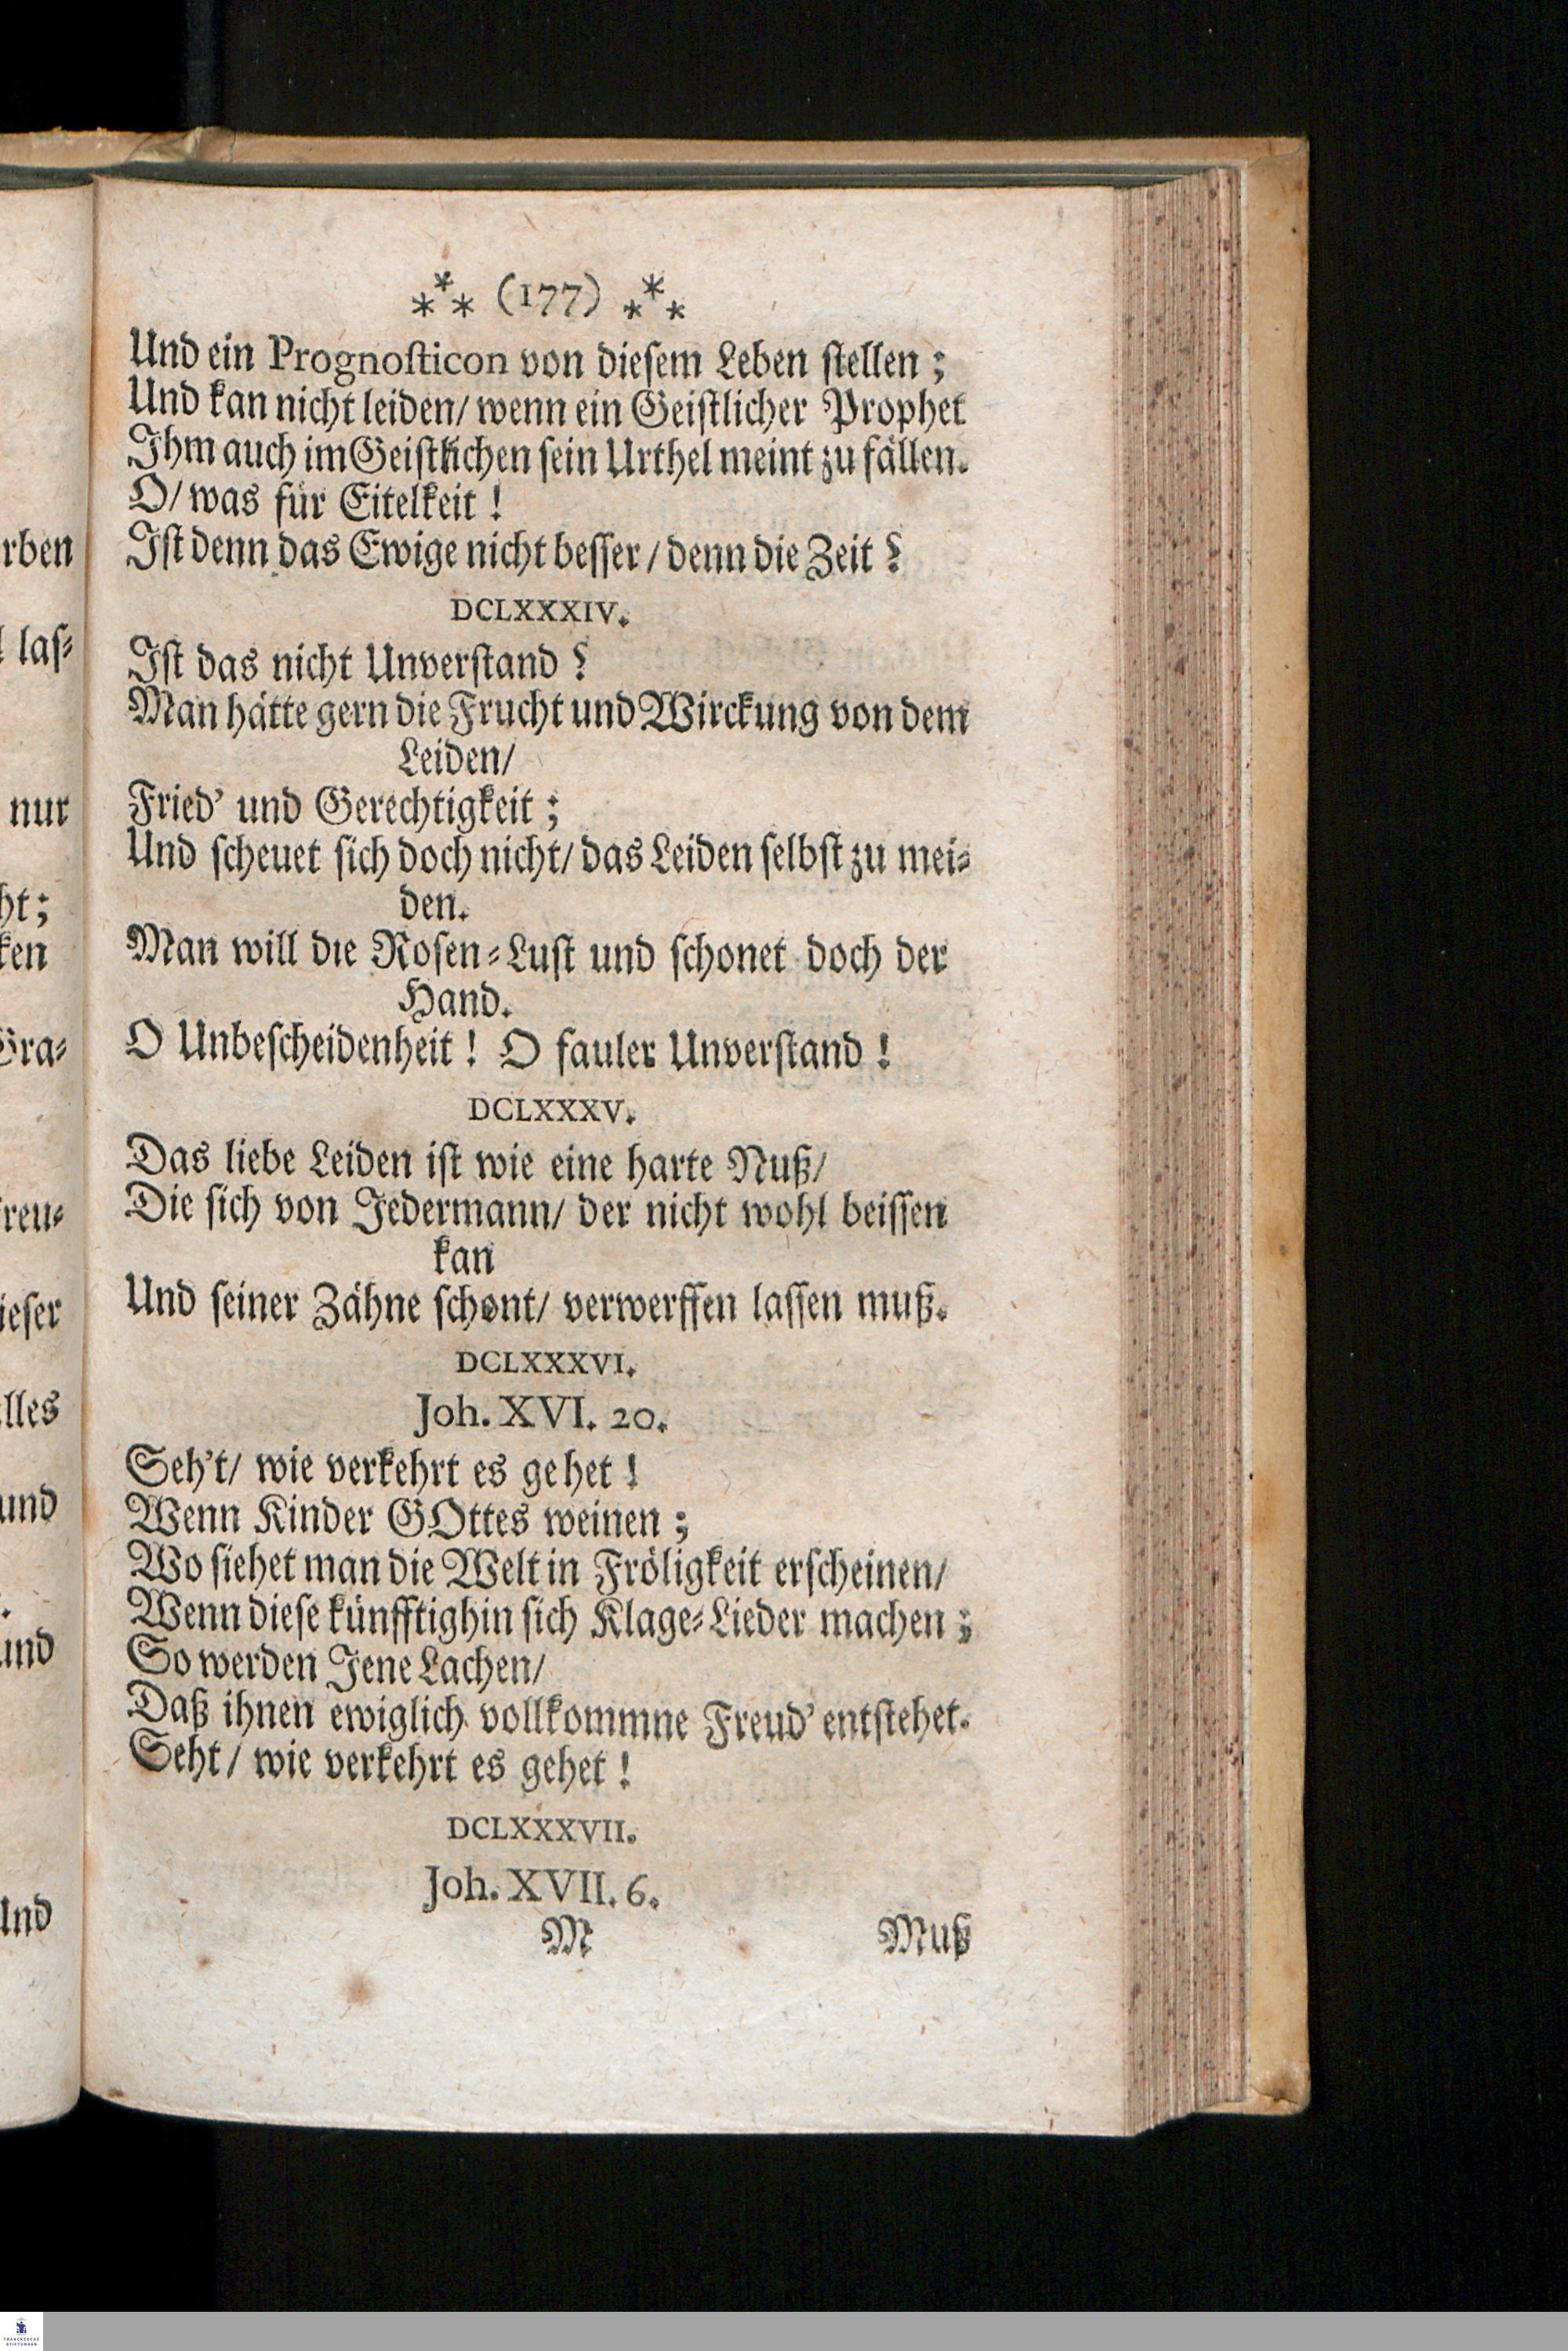 rben
las⸗
nur
ht;
ken
Gra⸗
freu⸗
ieser
lles
und
und
Und
*** (177) ***
Und ein Prognosticon von diesem Leben stellen;
Und kan nicht leiden/ wenn ein Geistlicher Prophet
Ihm auch im Geistlichen sein Urthel meint zu fällen.
O/ was für Eitelkeit!
Ist denn das Ewige nicht besser/ denn die Zeit?
DCLXXXIV.
Ist das nicht Unverstand?
Man hätte gern die Frucht und Wirckung von dem
Leiden/
Fried' und Gerechtigkeit;
Und scheuet sich doch nicht/ das Leiden selbst zu mei⸗
den.
Man will die Rosen⸗Lust und schonet doch der
Hand.
O Unbescheidenheit! O fauler Unverstand!
DCLXXXV.
Das liebe Leiden ist wie eine harte Nuß/
Die sich von Jedermann/ der nicht wohl beissen
kan
Und seiner Zähne schont/ verwerffen lassen muß.
DCLXXXVI.
Joh. XVI. 20.
Seh't/ wie verkehrt es gehet!
Wenn Kinder GOttes weinen;
Wo siehet man die Welt in Fröligkeit erscheinen/
Wenn diese künfftighin sich Klage⸗Lieder machen;
So werden Jene Lachen/
Daß ihnen ewiglich vollkommne Freud' entstehet.
Seht/ wie verkehrt es gehet!
DCLXXXVII.
Joh. XVII. 6.
M Muß
FRANCKESCHE
STIFTUNGEN